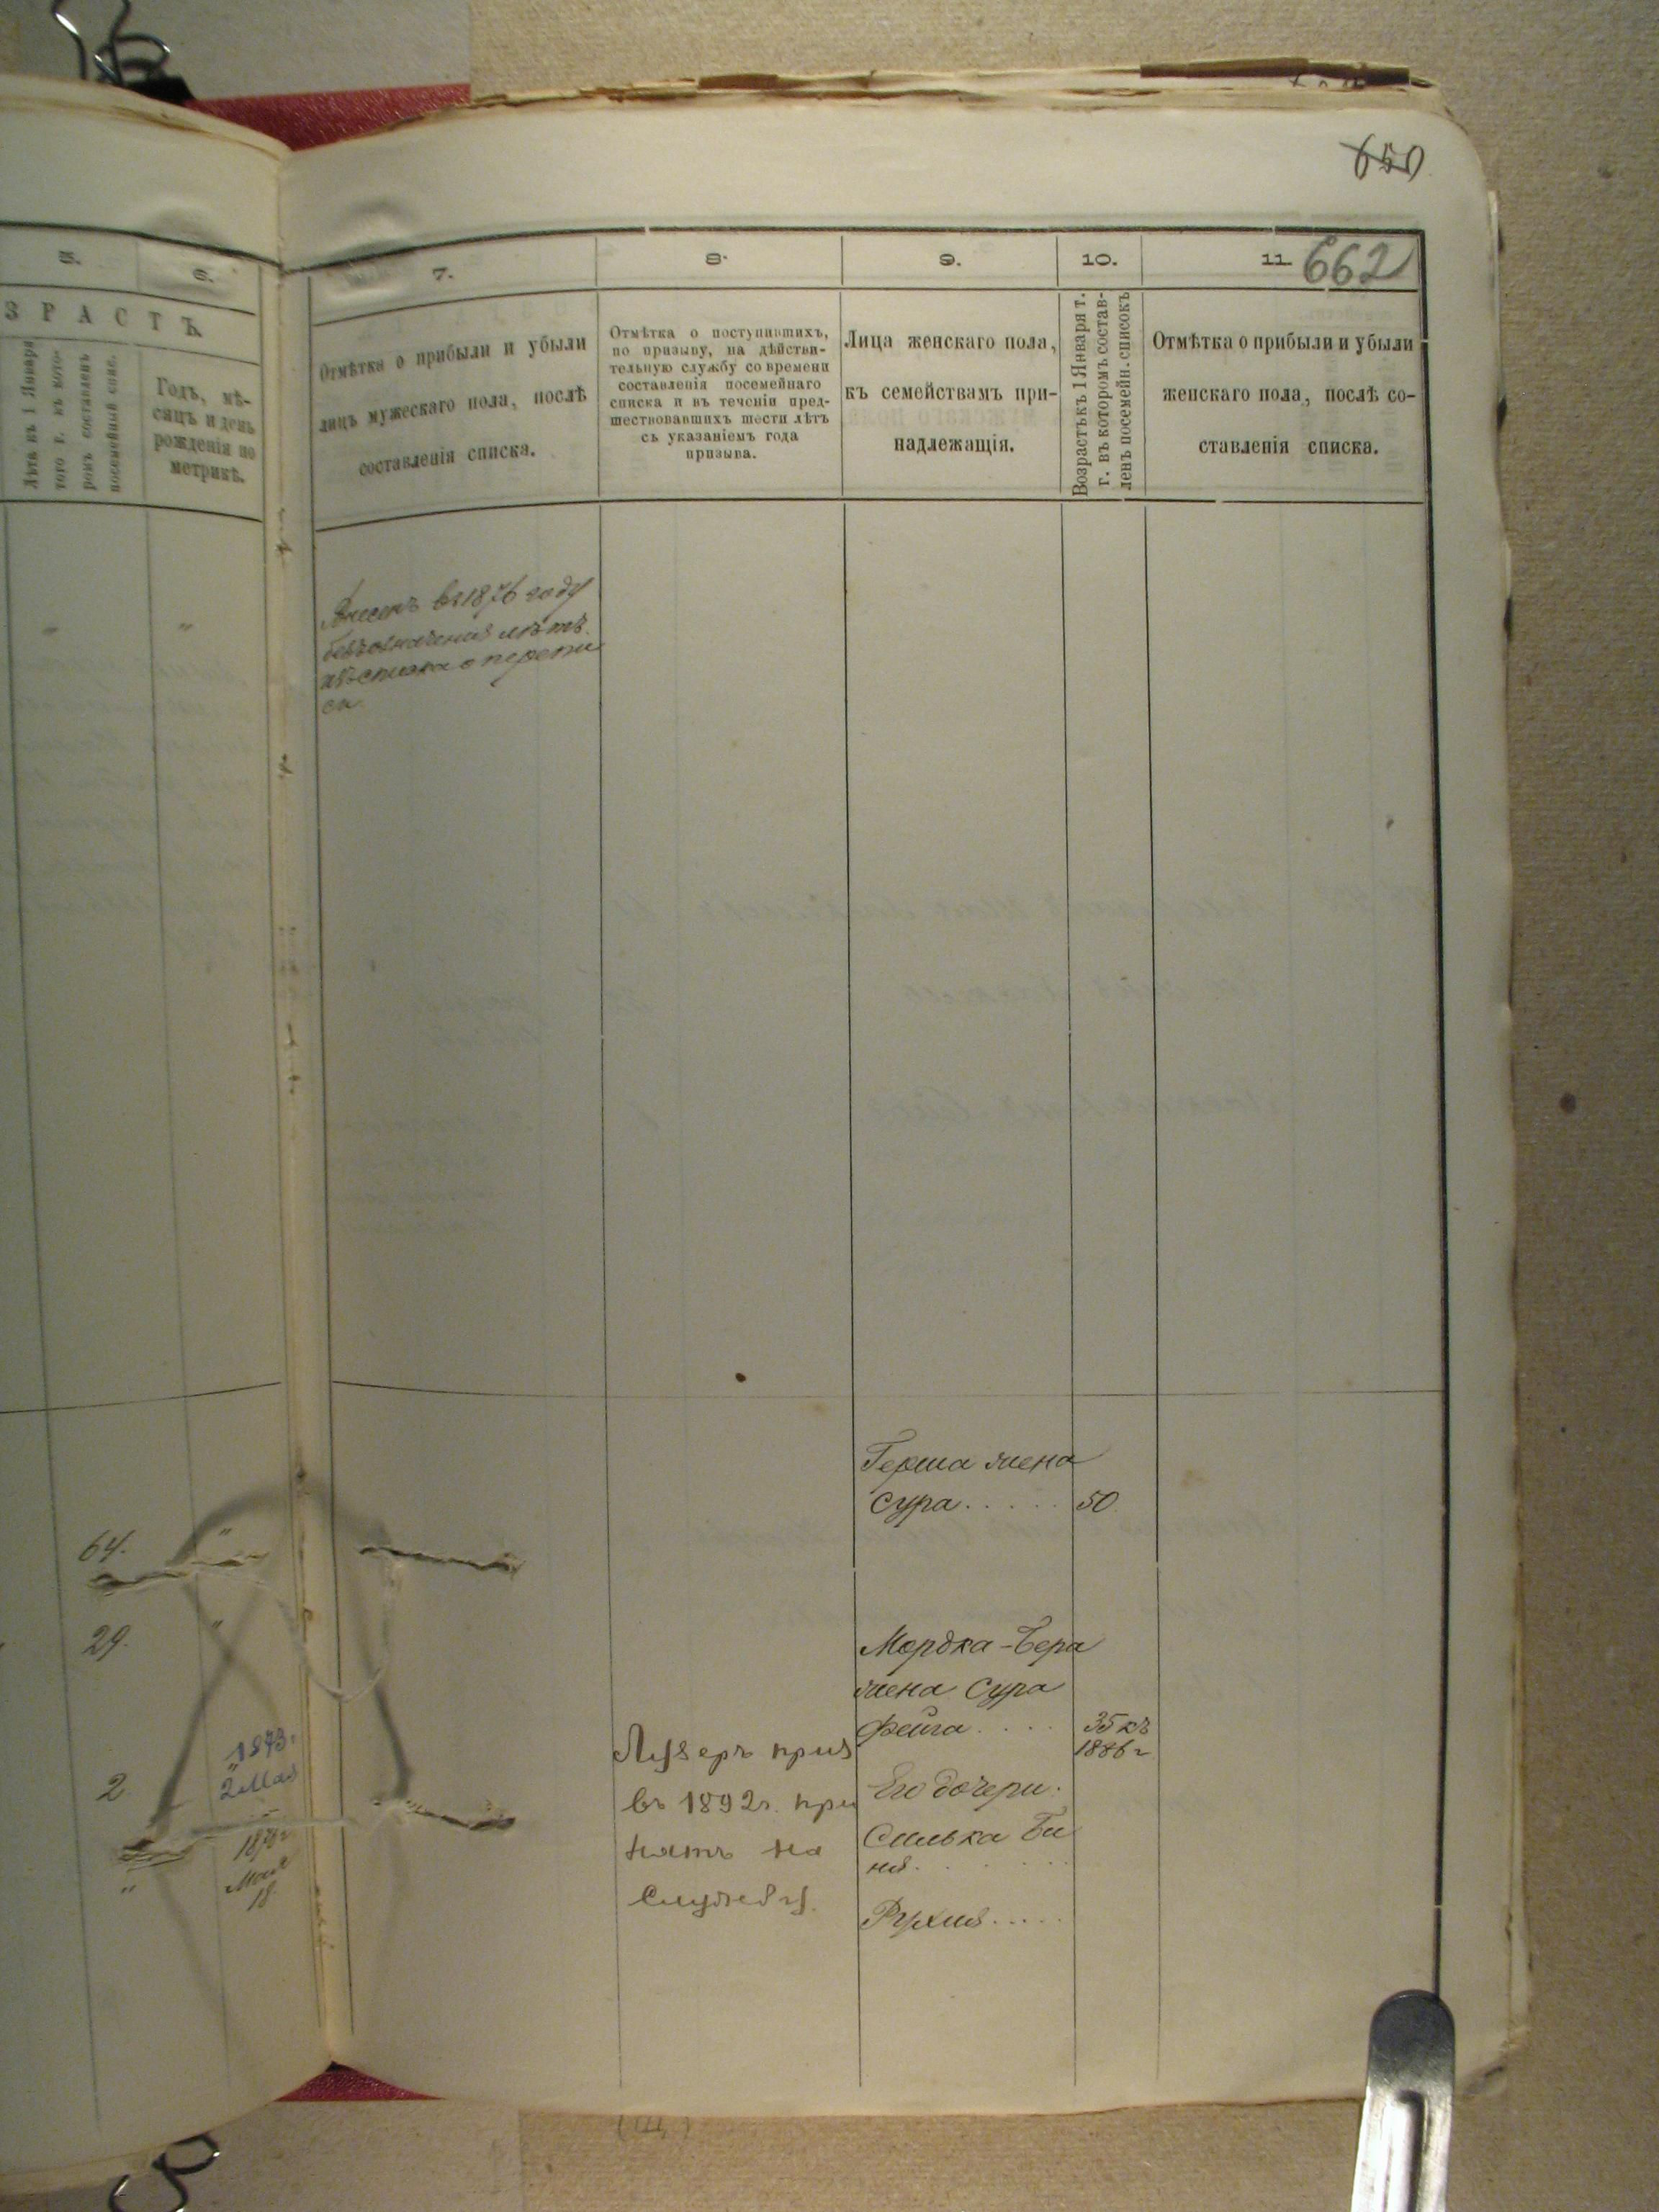 650
5.
6.
7.
8.
9.
10.
11.
662
ЗРАСТЪ.
Лѣта къ 1 Января
того г. въ кото-
ромъ составленъ
посемейный спис.
Годъ, мѣ-
сяцъ и день
рожденія по
метрикѣ.
Отмѣтка о прибыли и убыли
лицъ мужескаго пола, послѣ
составленія списка.
Отмѣтка о поступившихъ,
по призыву, на дѣйстви-
тельную службу со времени
составленія посемейнаго
списка и въ теченіи пред-
шествовавшихъ шести лѣтъ
съ указаніемъ года
призыва.
Лица женскаго пола,
къ семействамъ при-
надлежащія.
Возрастъ къ 1 Января т.
г. въ которомъ состав-
ленъ посемейн. списокъ
Отмѣтка о прибыли и убыли
женскаго пола, послѣ со-
ставленія списка.
въ 1876 году
безъ означенія лѣтъ.
о перепи
си.
Герша жена
Сура..... 50.
64.
29.
Мордка-Бера
жена Сура
Фейга.... 35 къ
1886 г
2
1873.
2 Мая
1878 г
Мая
18
Лузеръ приз
въ 1892 г. при
нятъ на
Службу.
Его дочери:
Смивка Би
ня.
Рухля.....